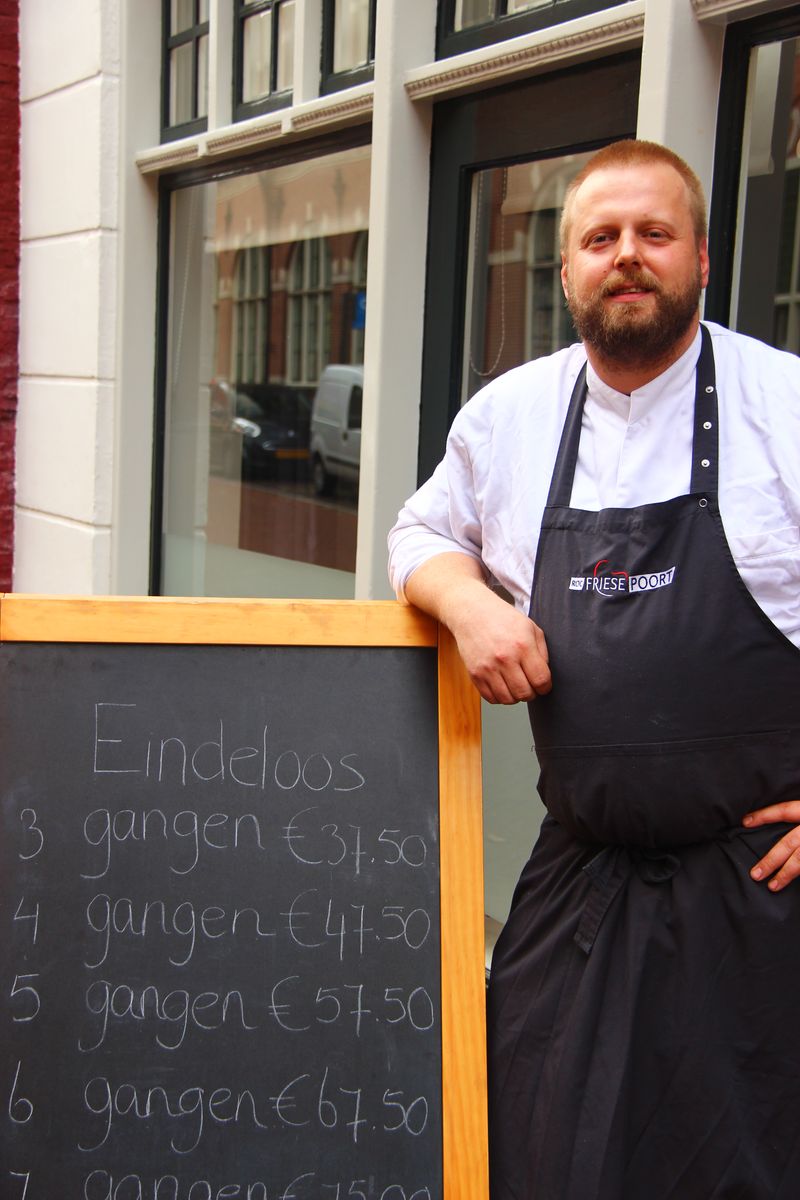 ROC FRIESE POORT
Eindeloos
3 gangen €37.50
4 gangen €47.50
5 gangen €57.50
6 gangen €67.50
7 gangen €75.00